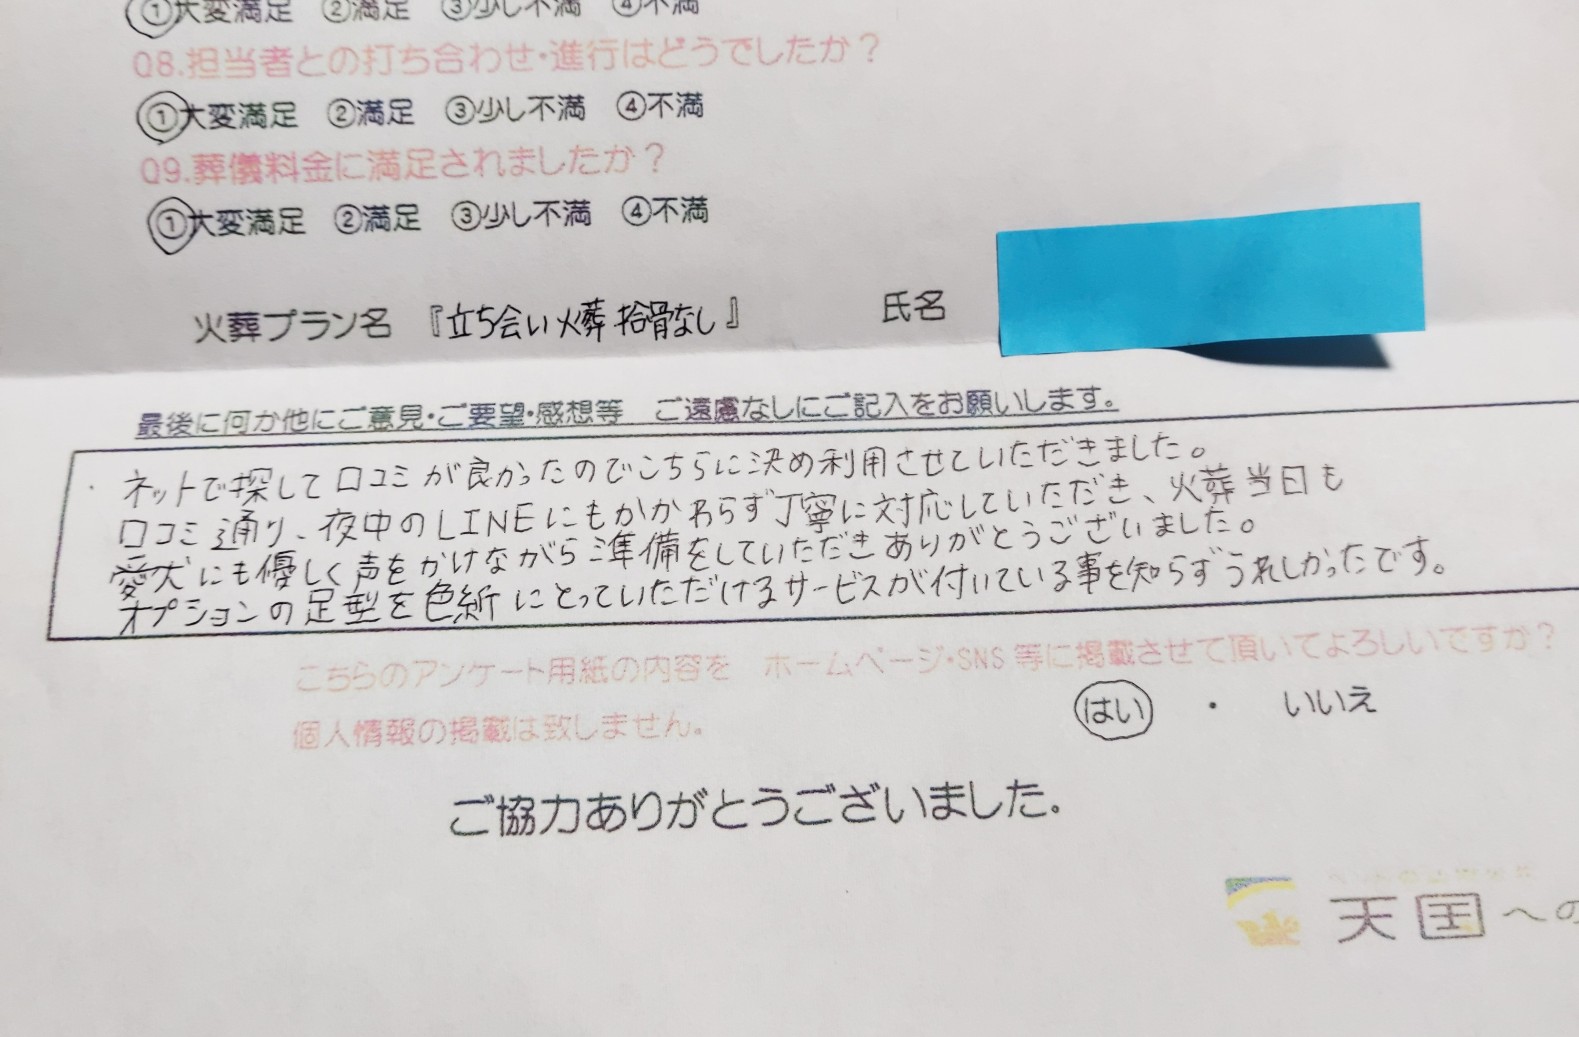 ①大変満足 ②満足 ③少し不満 ④不満
Q8.担当者との打ち合わせ・進行はどうでしたか？
①大変満足 ②満足 ③少し不満 ④不満
Q9.葬儀料金に満足されましたか？
①大変満足 ②満足 ③少し不満 ④不満
火葬プラン名 『立ち会い火葬 拾骨なし』 氏名
最後に何か他にご意見・ご要望・感想等 ご遠慮なしにご記入をお願いします。
・ネットで探して口コミが良かったのでこちらに決め利用させていただきました。
口コミ通り、夜中のLINEにもかかわらず丁寧に対応していただき、火葬当日も
愛犬にも優しく声をかけながら準備をしていただきありがとうございました。
オプションの足型を色紙にとっていただけるサービスが付いている事を知らずうれしかったです。
こちらのアンケート用紙の内容を ホームページ・SNS等に掲載させて頂いてよろしいですか？
個人情報の掲載は致しません。
はい ・ いいえ
ご協力ありがとうございました。
天国への